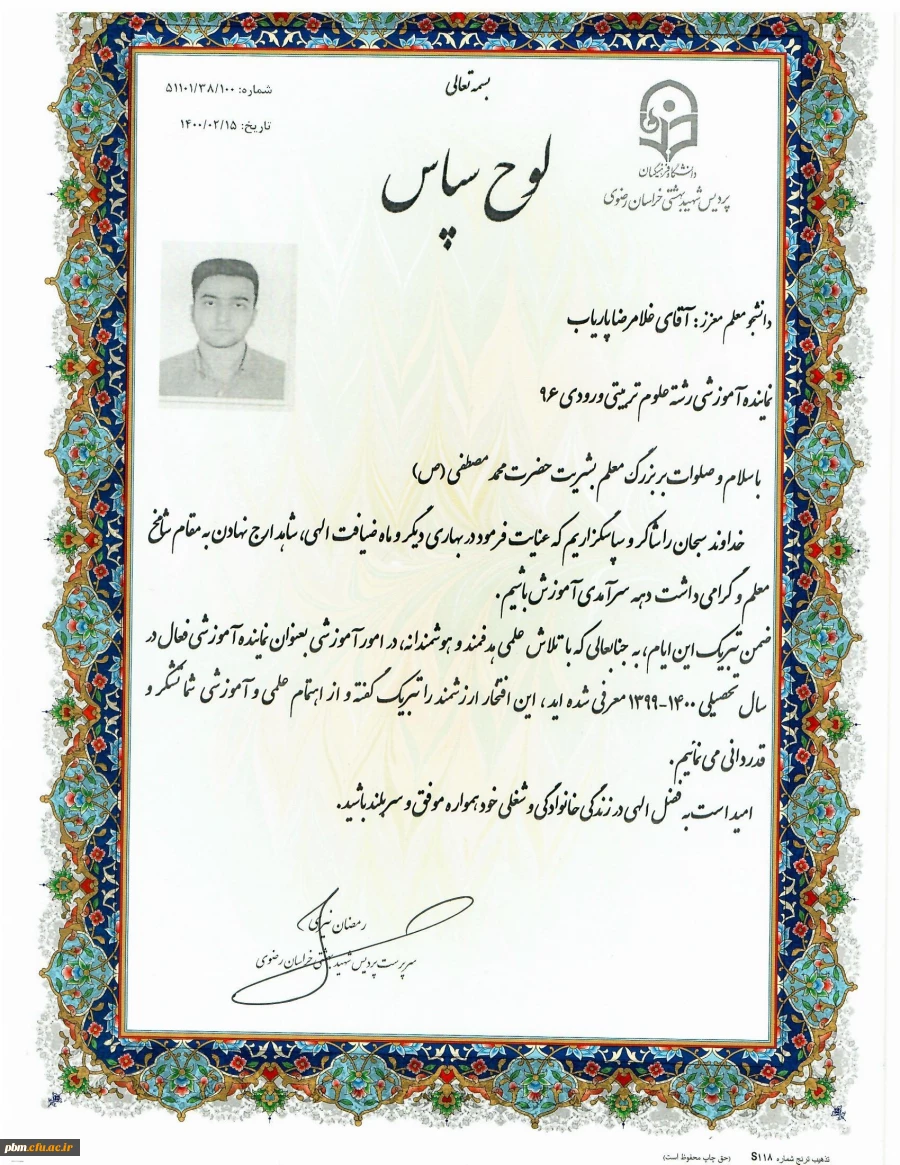 بسمه تعالی
شماره: ۵۱۱۰۱/۳۸/۱۰۰
تاریخ: ۱۴۰۰/۰۲/۱۵
دانشگاه فرهنگیان
پردیس شهید بهشتی خراسان رضوی
لوح سپاس
دانشجو معلم معزز: آقای غلامرضا پاریاب
نماینده آموزشی رشته علوم تربیتی ورودی ۹۶
با سلام و صلوات بر بزرگ معلم بشریت حضرت محمد مصطفی (ص)
خداوند سبحان را شاکر و سپاسگزاریم که عنایت فرمود در بهاری دیگر و ماه ضیافت الهی، شاهد ارج نهادن به مقام شامخ
معلم و گرامی داشت دهه سرآمدی آموزش باشیم.
ضمن تبریک این ایام، به جنابعالی که با تلاش علمی هدفمند و هوشمندانه، در امور آموزشی بعنوان نماینده آموزشی فعال در
سال تحصیلی ۱۴۰۰-۱۳۹۹ معرفی شده اید، این افتخار ارزشمند را تبریک گفته و از اهتمام علمی و آموزشی شما تشکر و
قدردانی می نمائیم.
امید است به فضل الهی در زندگی خانوادگی و شغلی خود همواره موفق و سربلند باشید.
رمضان نیری
سرپرست پردیس شهید بهشتی خراسان رضوی
تذهیب ترنج شماره S۱۱۸ (حق چاپ محفوظ است)
pbm.cfu.ac.ir